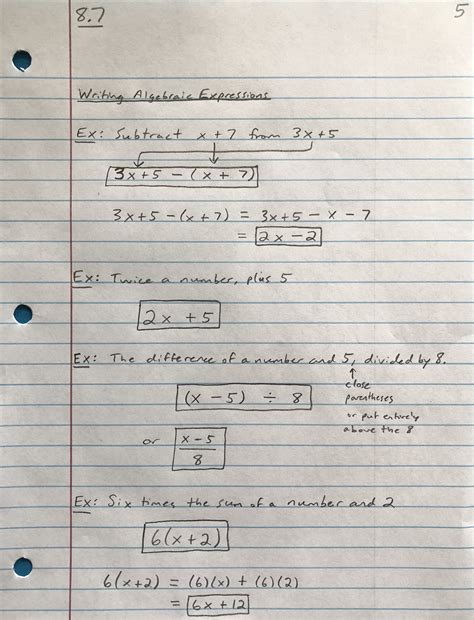 8.7
5
Writing Algebraic Expressions
Ex: Subtract x + 7 from 3x + 5
3x + 5 - (x + 7)
3x + 5 - (x + 7) = 3x + 5 - x - 7
= 2x - 2
Ex: Twice a number, plus 5
2x + 5
Ex: The difference of a number and 5, divided by 8.
↑
close
parentheses
or put entirely
above the 8
(x - 5) ÷ 8
or x - 5
8
Ex: Six times the sum of a number and 2
6(x + 2)
6(x + 2) = (6)(x) + (6)(2)
= 6x + 12